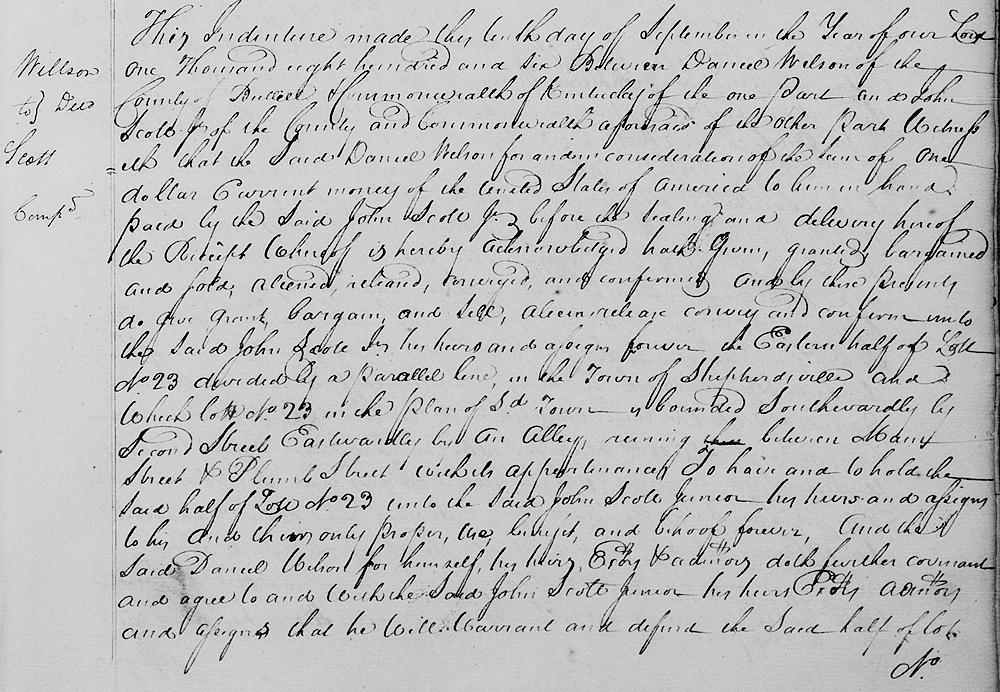 This Indenture made this tenth day of September in the Year of our Lord
Willson
one Thousand eight hundred and six Between Daniel Wilson of the
to} Deed
County of Bullitt & Commonwealth of Kentucky of the one Part and John
Scott Jr of the County and Commonwealth aforesaid of the other Part Witness
Scott
=eth that the Said Daniel Wilson for and in consideration of the Sum of One
dollar Current money of the united States of America to him in hand
Comp.d
paid by the Said John Scott Jr before the Sealing and delivery hereof
the Receipt Whereof is hereby Acknowledged hath Given, granted, bargained
and Sold, aliened, released, conveyed, and confirmed and by these presents
do give grant, bargain, and Sell, alien release convey and confirm unto
the Said John Scott Jr his heirs and assigns forever the Eastern half of Lott
No 23 divided by a Parallel line, in the Town of Shepherdsville and
Which lott No. 23 in the plan of Sd Town is bounded Southwardly by
Second Street Eastwardly by An Alley, running between Main
Street & Plumb Street With its appurtenances To have and to hold the
Said half of Lott No 23 unto the Said John Scott Junior his heirs and assigns
to his and their only proper, use, benefit, and behoof forever, And the
Said Daniel Wilson for himself, his heirs, Exors & admors doth further covenant
and agree to and With the Said John Scott Junior his heirs Exors admors
and assigns that he Will Warrant and defend the Said half of lot
No